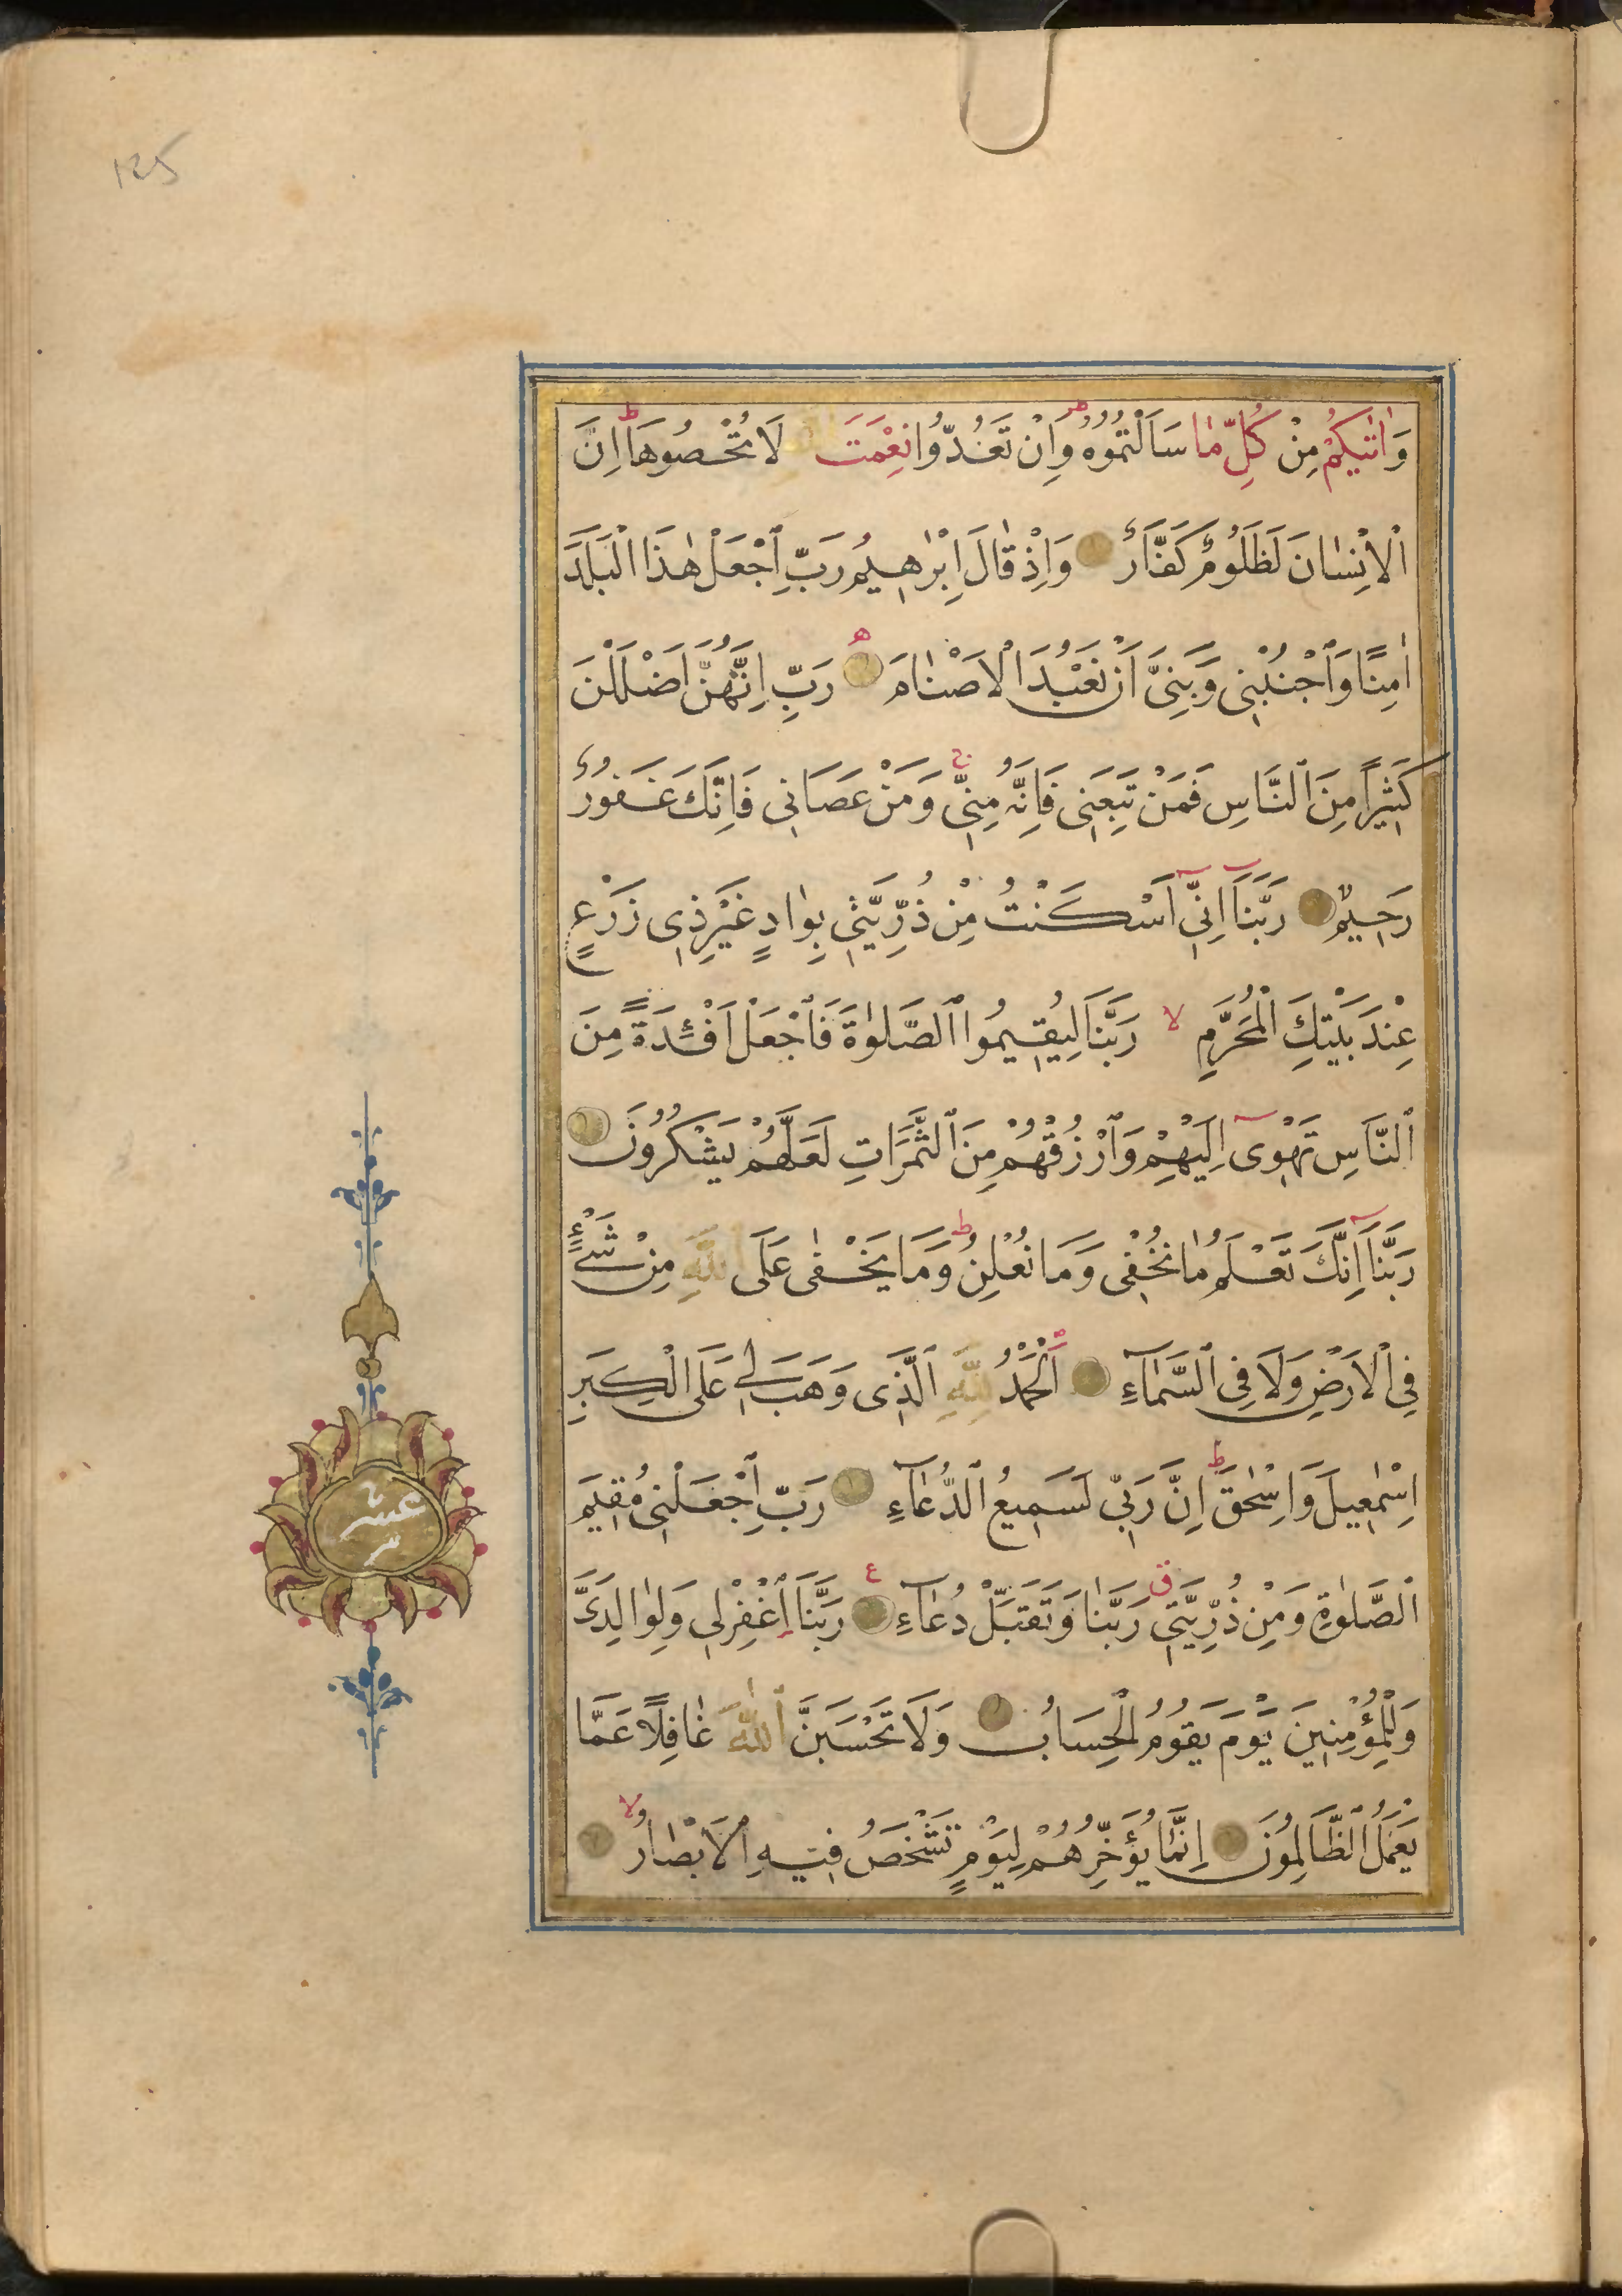 125
وَاٰتٰيكُمْ مِنْ كُلِّ مَا سَاَلْتُمُوهُ ط وَاِنْ تَعُدُّوا نِعْمَتَ لَا تُحْصُوهَا ط اِنَّ
الْاِنْسَانَ لَظَلُومٌ كَفَّارٌ وَاِذْ قَالَ اِبْرٰهِيمُ رَبِّ اجْعَلْ هٰذَا الْبَلَدَ
اٰمِنًا وَاجْنُبْنِى وَبَنِىَّ اَنْ نَعْبُدَ الْاَصْنَامَ ه رَبِّ اِنَّهُنَّ اَضْلَلْنَ
كَثِيرًا مِنَ النَّاسِ فَمَنْ تَبِعَنِى فَاِنَّهُ مِنِّى ج وَمَنْ عَصَانِى فَاِنَّكَ غَفُورٌ
رَحِيمٌ رَبَّنَا اِنِّى اَسْكَنْتُ مِنْ ذُرِّيَّتِى بِوَادٍ غَيْرِ ذِى زَرْعٍ
عِنْدَ بَيْتِكَ الْمُحَرَّمِ لا رَبَّنَا لِيُقِيمُوا الصَّلٰوةَ فَاجْعَلْ اَفْئِدَةً مِنَ
النَّاسِ تَهْوِى اِلَيْهِمْ وَارْزُقْهُمْ مِنَ الثَّمَرَاتِ لَعَلَّهُمْ يَشْكُرُونَ
رَبَّنَا اِنَّكَ تَعْلَمُ مَا نُخْفِى وَمَا نُعْلِنُ ط وَمَا يَخْفٰى عَلَى اللّٰهِ مِنْ شَىْءٍ
فِى الْاَرْضِ وَلَا فِى السَّمَاءِ اَلْحَمْدُ لِلّٰهِ الَّذِى وَهَبَ لِى عَلَى الْكِبَرِ
اِسْمٰعِيلَ وَاِسْحٰقَ ط اِنَّ رَبِّى لَسَمِيعُ الدُّعَاءِ رَبِّ اجْعَلْنِى مُقِيمَ
الصَّلٰوةِ وَمِنْ ذُرِّيَّتِى ق رَبَّنَا وَتَقَبَّلْ دُعَاءِ ع رَبَّنَا اغْفِرْ لِى وَلِوَالِدَىَّ
وَلِلْمُؤْمِنِينَ يَوْمَ يَقُومُ الْحِسَابُ وَلَا تَحْسَبَنَّ اللّٰهَ غَافِلًا عَمَّا
يَعْمَلُ الظَّالِمُونَ اِنَّمَا يُؤَخِّرُهُمْ لِيَوْمٍ تَشْخَصُ فِيهِ الْاَبْصَارُ لا
عشر